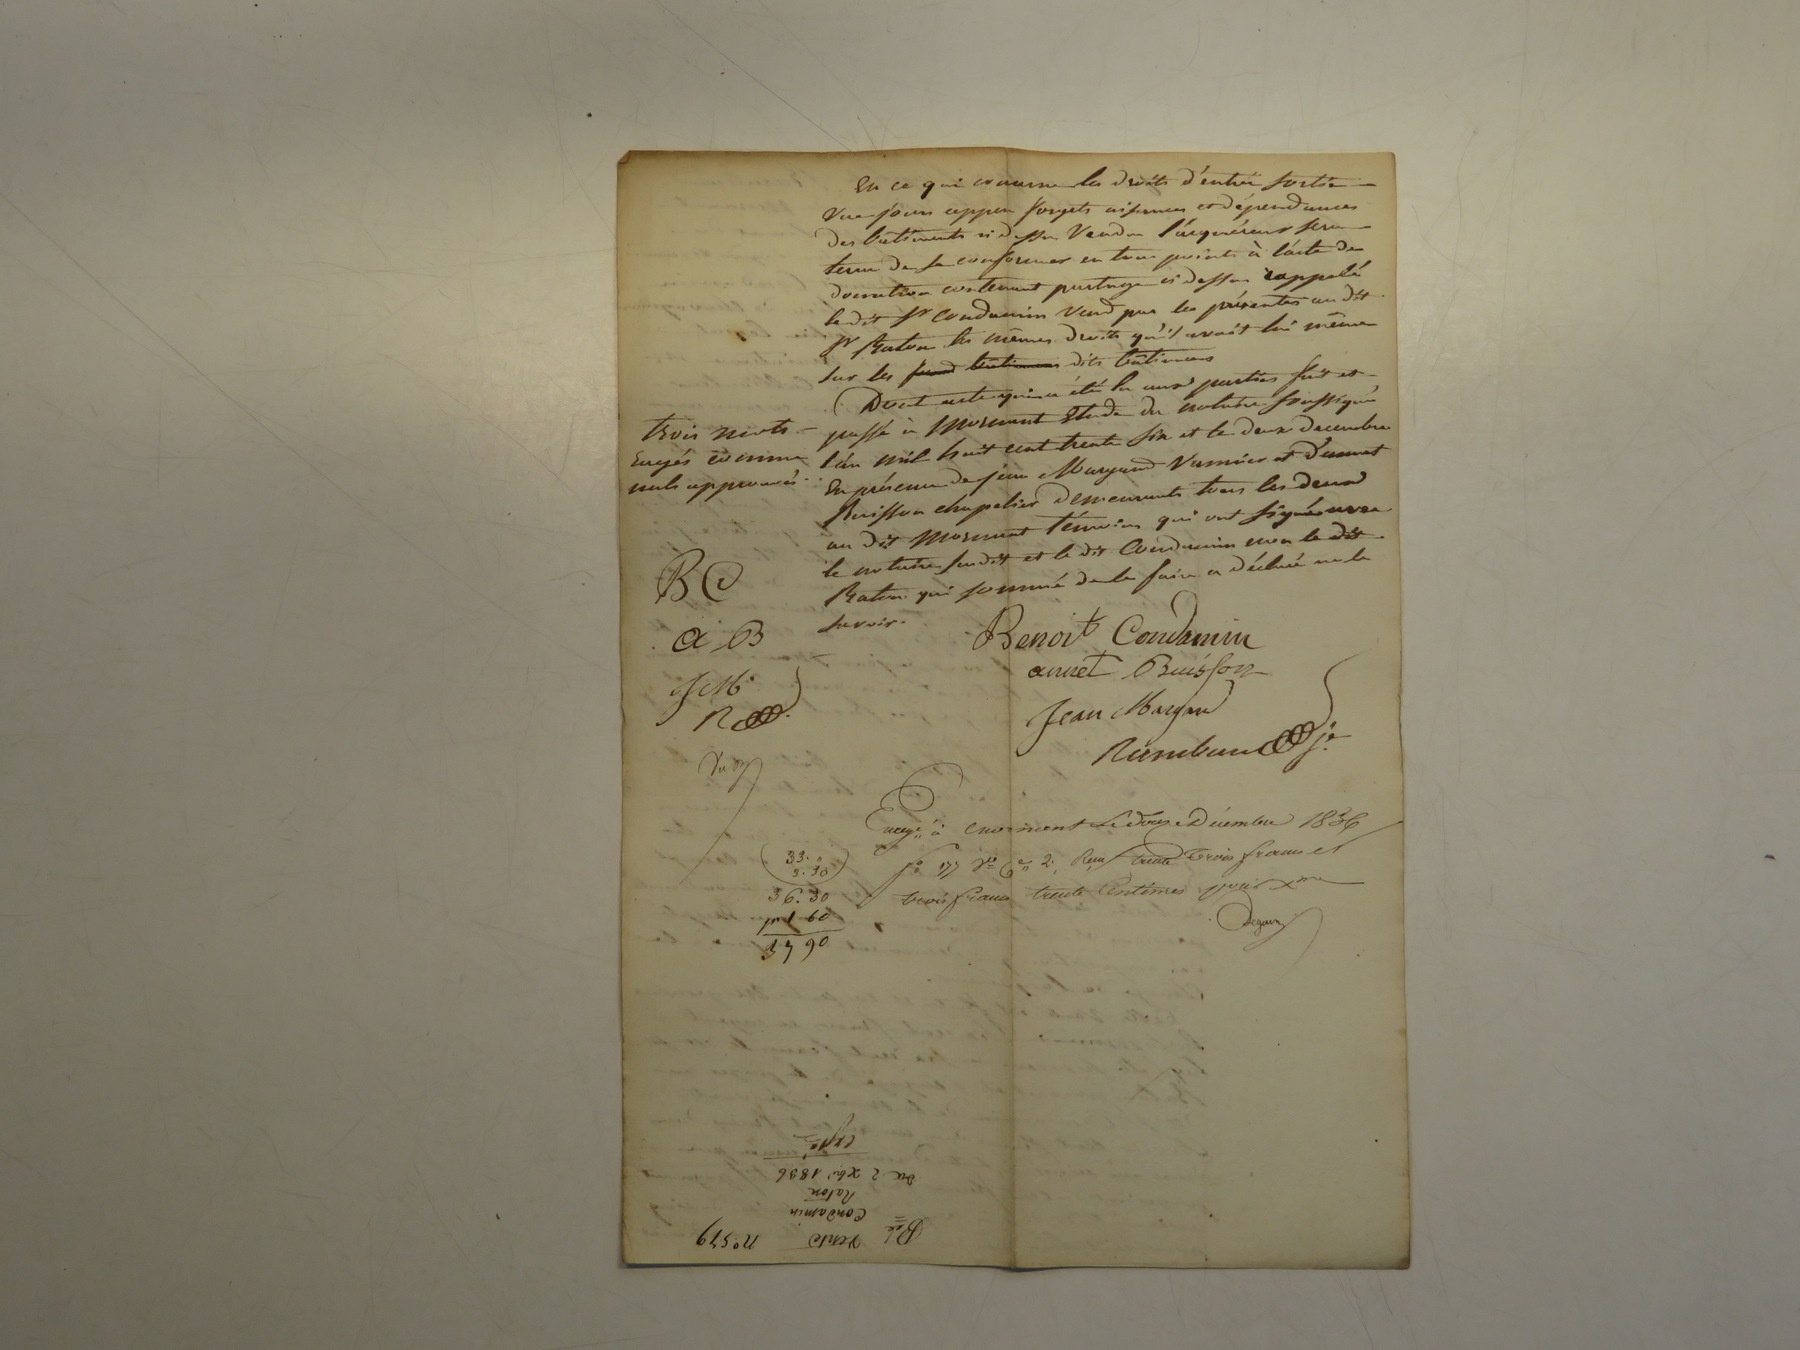 En ce qui concerne les droits d'entrée sortie
vue jours appen forgets aisances et dépendances
des batiments ci dessus vendu l'acquéreur sera
tenu de se conformer en tous points à l'acte de
donation contenant partage ci dessus rappelé
le dit Sr Condamin vend par les présentes au dit
Sr Raton les mêmes droits qu'il avait lui même
sur les batiments dits batimens
Dont acte qui a été lu aux parties fait et
passé à Mornant Etude du notaire soussigné
l'an mil huit cent trente six et le deux decembre
En présence de jean Margand et d'annet
Buisson chapelier demeurants tous les deux
au dit Mornant témoins qui ont signé avec
le notaire susdit et le dit Condamin non le dit
Raton qui sommé de le faire a déclaré ne le
savoir.
trois mots
rayés comme
nuls approuvés.
BC
a B
JM
R
Benoit Condamin
annet Buisson
Jean Margand
Enregé à mornant Le Décembre 1836
fo 177 Vo Ce 2. Reçu trente trois francs et
trois francs trente Centimes pour Xme
33. "
3. 30
36. 30
1 60
37 90
No 579
Vente
Condamin
Raton
Du 2 Xbre 1836